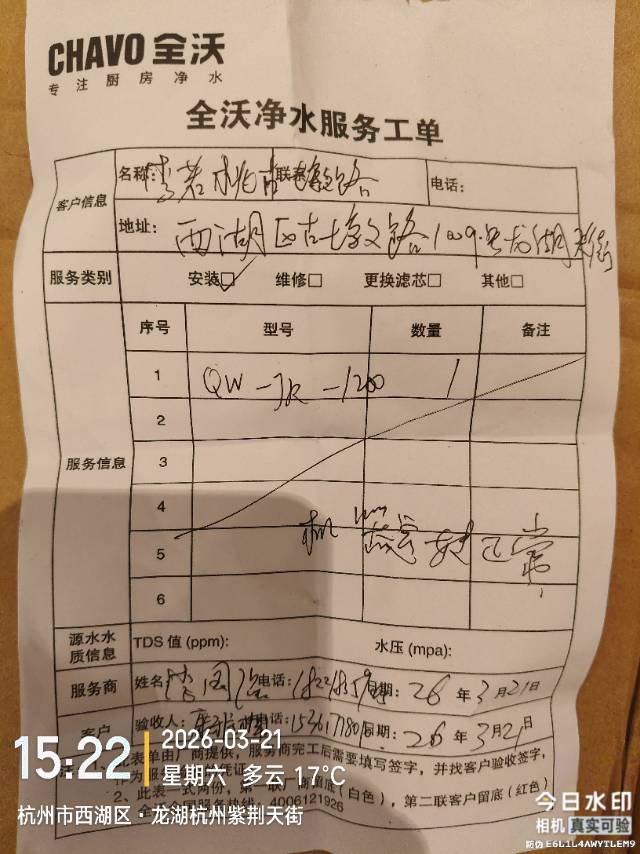 CHAVO 全沃
专注厨房净水
全沃净水服务工单
客户信息
名称 联系 古墩路 电话：
地址： 西湖区古墩文路1009号龙湖天街
服务类别 安装☑ 维修□ 更换滤芯□ 其他□
服务信息
序号 型号 数量 备注
1 QW-JR-1200 1
2
3
4
5
机器 安装正常
6
源水水质信息 TDS 值 (ppm): 水压 (mpa):
服务商 姓名 电话： 日期：26年3月21日
客户 验收人： 电话： 日期：26年3月21日
此表单由厂商提供，服务商完工后需要填写签字，并找客户验收签字，
为服务凭证
2、此表一式两份，第一联厂商留底(白色)，第二联客户留底(红色)
全沃全国服务热线：4006121926
15:22
2026-03-21
星期六 多云 17℃
杭州市西湖区·龙湖杭州紫荆天街
今日水印
相机 真实可验
防伪 E6L1L4AWYTLEM9